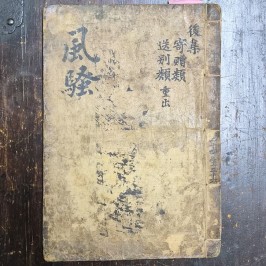 後集
寄贈類
送別類 重出
風騷